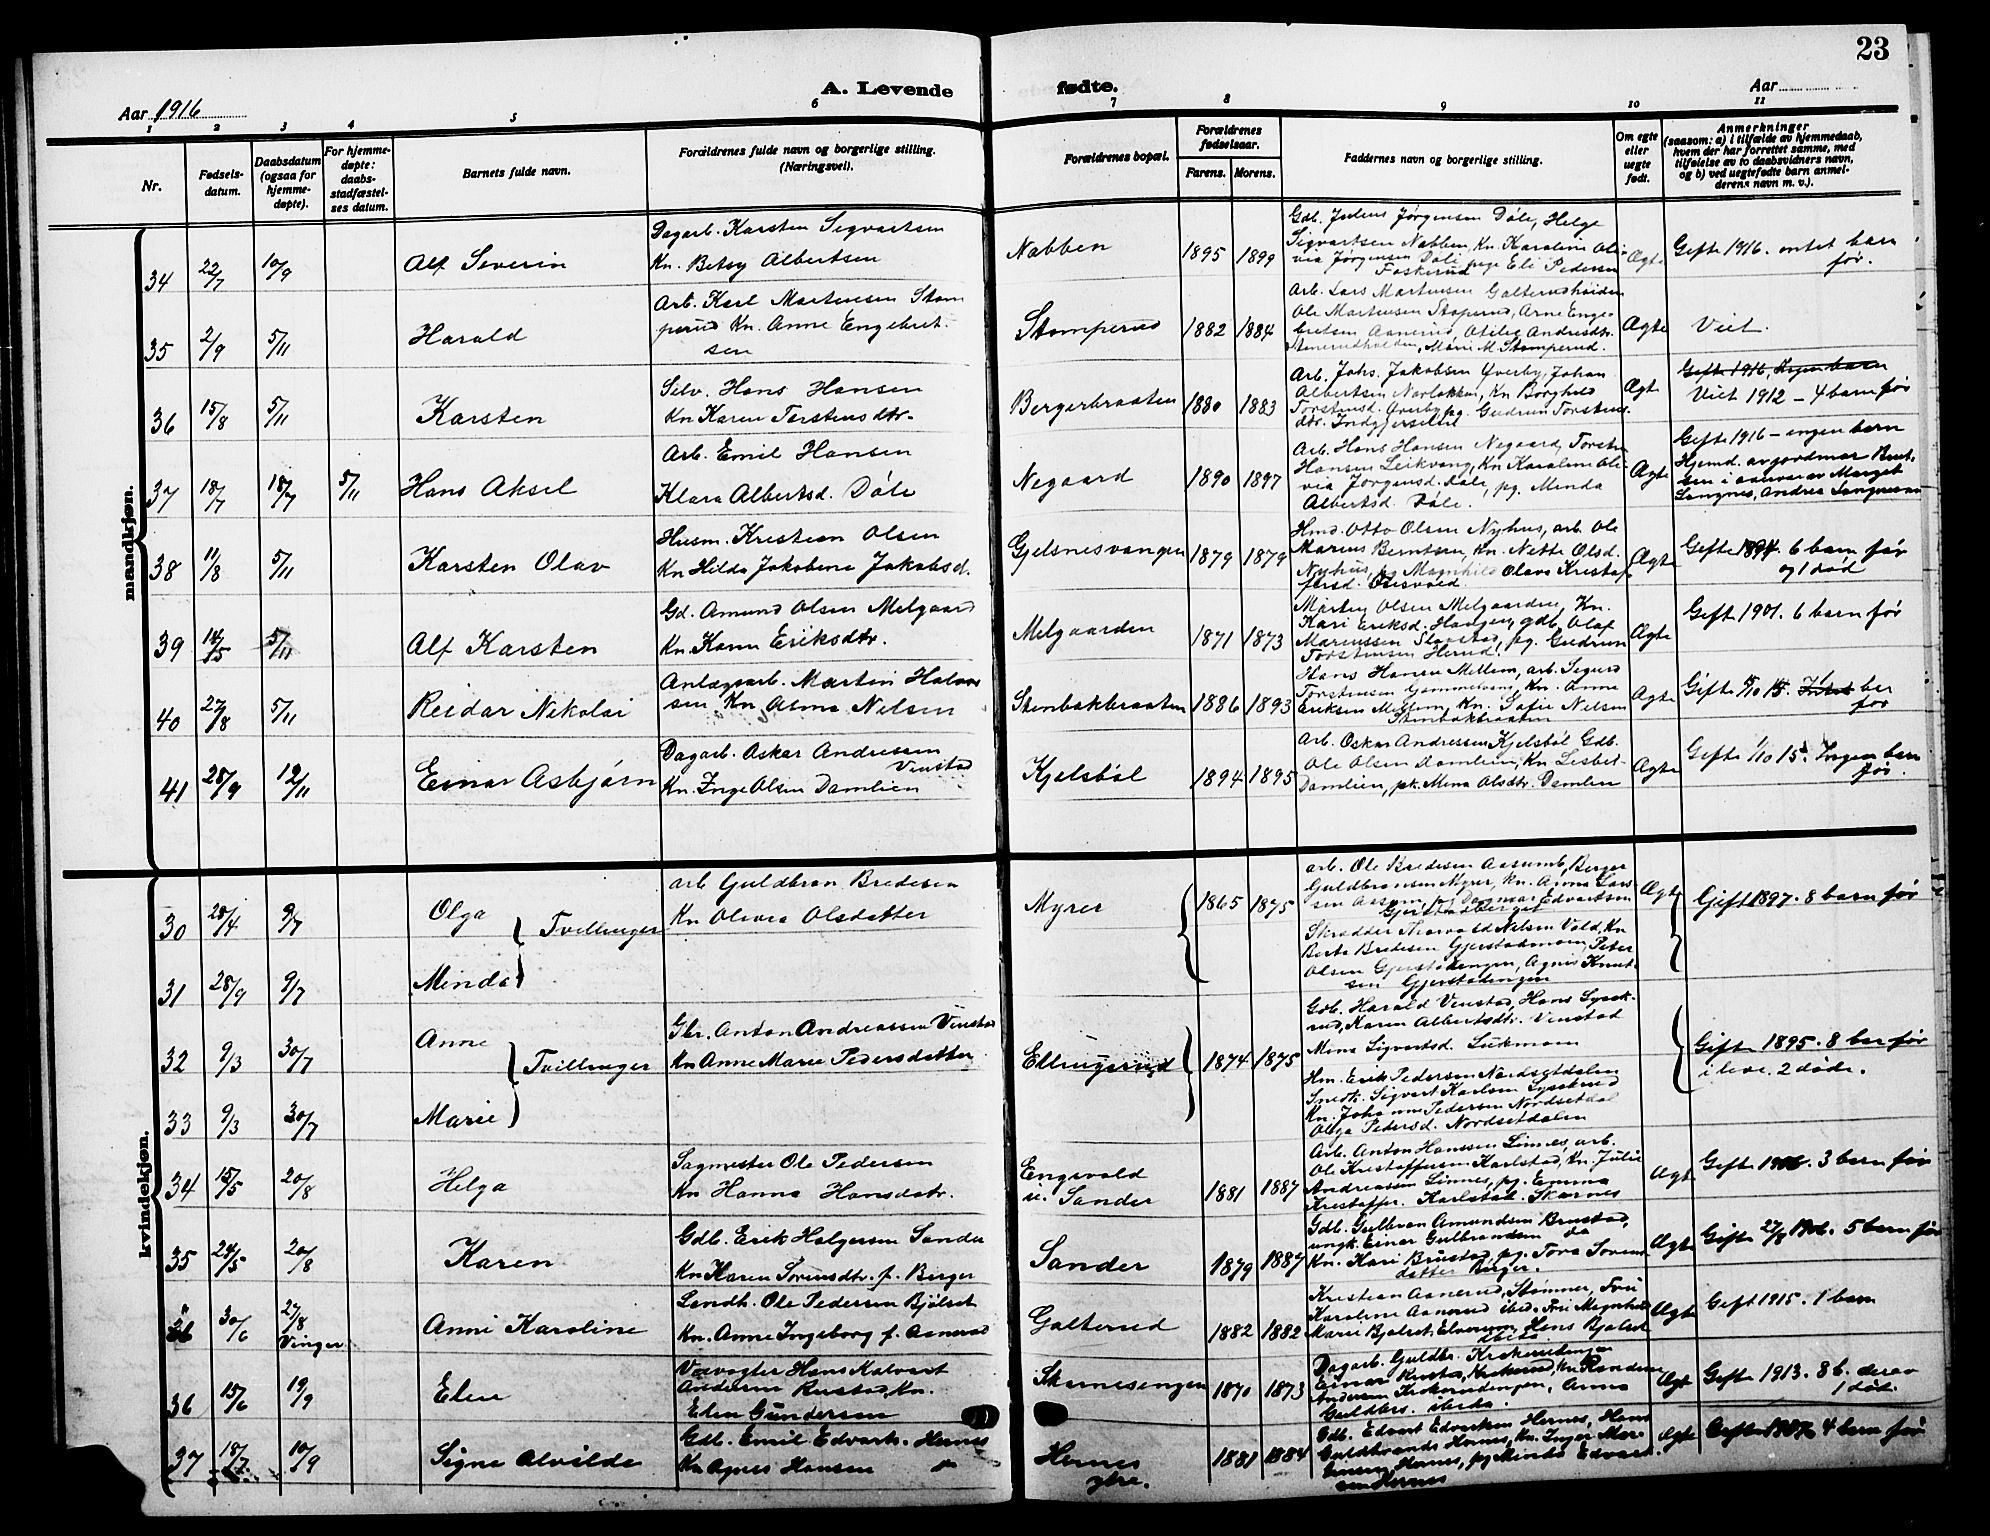 23
A. Levende fødte.
Aar 1916
Aar
1 2 3 4 5 6 7 8 9 10 11
Nr.
Fødsels-
datum.
Daabsdatum
(ogsaa for
hjemme-
døpte).
For hjemme-
døpte:
daabs-
stadfæstel-
ses datum.
Barnets fulde navn.
Forældrenes fulde navn og borgerlige stilling.
(Næringsvei).
Forældrenes bopæl.
Forældrenes
fødselsaar.
Farens. Morens.
Faddernes navn og borgerlige stilling.
Om egte
eller
uegte
født.
Anmerkninger
(saasom: a) i tilfælde av hjemmedaab,
hvem der har forrettet samme, med
tilføielse av to daabsvidners navn,
og b) ved uegtefødte barn anmel-
derens navn m. v.).
mandkjøn.
34 22/7 10/9 Alf Severin
Dagarb. Karsten Sigvartsen
Kn. Betsy Albertsen
Nabben 1895 1899
Gdb. Julius Jørgensen Døle, Helge
Sigvartsen Nabben, Kn. Karoline Oli-
via Jørgensen Døli, pige Eli Pedersen
Foskerud
Ægte
Gifte 1916. intet barn
før.
35 2/9 5/11 Harald
Arb. Karl Martinsen Stom
perud Kn. Anne Engebret-
sen
Stomperud 1882 1884
Arb. Lars Martinsen Galterudhøiden
Ole Martinsen Stoperud, Arne Enge
bretsen Aanerud, Otilie Andreasdtr.
Marie M. Stomperud.
Ægte
Viet.
36 15/8 5/11 Karsten
Selv. Hans Hansen
Kn Karen Torstensdtr.
Bergerbraaten 1880 1883
Arb. Johs. Jakobsen Overby, Johan
Albertsen Norløkken, Kn Borghild
Torstensd. Overby pg. Gudrun Torstens
dtr. Indgjerselet
Ægte
Gifte 1916, Ingen barn
Viet 1912 - 4 barn før
37 18/7 18/7 5/11 Hans Aksel
Arb. Emil Hansen
Klara Albertsd. Døle
Negaard 1890 1897
Arb. Hans Hansen Negaard, Torste
Hansen Leikvang, Kn Karoline Oli-
via Jørgensd. Døle, pg. Minda
Albertsd. Døle.
Ægte
Gifte 1916 - ingen barn
Hjemd. av jordmor Brut-
sen i nærvær av Marget
Langnes, Andrea Langnesen
38 11/8 5/11 Karsten Olav
Husm. Kristian Olsen
Kn Hilda Jakobine Jakobsd.
Gjelsnesvangen 1879 1879
Hmd. Otto Olsen Nyhus, arb. Ole
Marius Berntsen, Kn. Nette Olsd.
Nyhus, pg Magnhild Olava Kristof
fersd.
Ægte
Gifte 6 barn før
og 1 død
39 14/5 5/11 Alf Karsten
Gd. Amund Olsen Melgaard
Kn. Karen Eriksdtr.
Melgaarden 1871 1873
Martin Olsen Melgaarden, Kn.
Kari Eriksd. Haugen, gdb. Olaf
Mareussen Slaastad, pg. Gudrun
Torstensen Herud.
Ægte
Gifte 1901. 6 barn før
40 27/8 5/11 Reidar Nikolai
Anlægsarb. Martin Halvor
sen Kn Alma Nilsen
Stenbakbraaten 1886 1893
Hans Hansen Mellem, arb. Sigurd
Torstensen Gammelvang, Kn. Anne
Eriksen Mellem, Kn. Sofie Nilsen
Stenbakbraaten
Ægte
Gifte /10 15. ber
før
41 28/9 12/11 Einar Asbjørn
Dagarb. Oskar Andreasen
Venstad
Kn. Inga Olsen Damlien
Kjelsbøl 1894 1895
Arb. Oskar Andressen Kjelsbøl Gdb.
Ole Olsen Damlien, Kn. Lisbet
Damlien, pk. Mina Olsdtr. Damlien
Ægte
Gifte 1/10 15. Ingen barn
før.
kvindekjøn.
30 28/4 9/7 Olga
Tvillinger
arb Guldbran Bredesen
Kn Olivia Olsdatter
Myrer 1865 1875
arb. Ole Bredesen Aasumb, Berger
Guldbransen Myrer, Kn. Anna Lars
sen Aasum, pg Dagmar Edvartsen
Gjerstadberget
Ægte
Gift 1897. 8 barn før
31 28/9 9/7 Minda
Skrædder Thorvald Nilsen Vold, Kn
Berta Bredesen Gjerstadmoen, Peter
Olsen Gjerstadengen, Agnes Knut-
sen Gjerstadengen
32 9/3 30/7 Anne
Tvillinger
Gbr. Anton Andreassen Venstad
Kn Anne Marie Pedersdatter
Ellingsrud 1874 1875
Gdb. Harald Venstad, Hans Lysak-
rud, Karen Albertsdtr. Venstad
Mina Sigvartsd. Lukmoen
Gifte 1895. 8 bar før
i live. 2 døde.
33 9/3 30/7 Marie
Hm. Erik Pedersen Nordsetdalen
Snedk. Sigvart Karlsen Lysakrud
Kn. Johanne Pedersen Nordsetdal
Olga Pedersd. Nordsetdalen
34 15/5 20/8 Helga
Sagmester Ole Pedersen
Kn Hanna Hansdatr.
Engvold
u. Sander 1881 1887
Arb. Anton Hanssen Linnes, arb.
Ole Kristoffersen Karlstad, Kn. Julie
Andreassen Linnes, pg. Emma
Kristoffer. Karlstad. Skarnes
Ægt
Gifte 1906. 3 barn før
35 24/5 20/8 Karen
Gdb. Erik Holgersen Sander
Kn Karen Sørensdtr. f. Berger
Sander 1879 1887
Gdb. Gulbran Amundsen Brustad,
ungk. Einar Gulbrandsen do
Kn. Kari Brustad, pg. Tora Sørens
datter Berger.
Ægte
Gifte 27/8 1906. 5 barn før
30/6 27/8
Vinger
Anne Karoline
Landh. Ole Pedersen Bjølset
Kn. Anne Ingeborg f. Aanerud
Galterud 1882 1882
Kristian Aanerud, Stømner, Frú
Karoline Aanerud ibid. Fru Magnhild
Marie Bjølset, Elverum, Hans Bjølset
ibid.
Ægte
Gift 1915. 1 barn
36 15/6 19/9 Elen
Vaavogter Hans Kalvart
Andersen Rustad, Kn.
Elen Gundersen
Skarnesengen 1870 1873
Dagarb. Guldbr. Krokerudengen
Andersen Krokerudengen, Anna
Guldbrs. ibid.
Ægt
Gifte 1913. 8 b. derav
1 død.
37 18/7 10/9 Signe Alvilde
Gdb. Emil Edvarts. Hernes
Kn Agnes Hansen
Hernes
ytre. 1881 1884
Gdb. Edvart Edvartsen Hernes, Hans
Guldbrands Hernes, Kn. Inger Mar
Hernes, pg Minda Edvard
sen Hernes
Ægt
Gifte 1907. 4 barn før